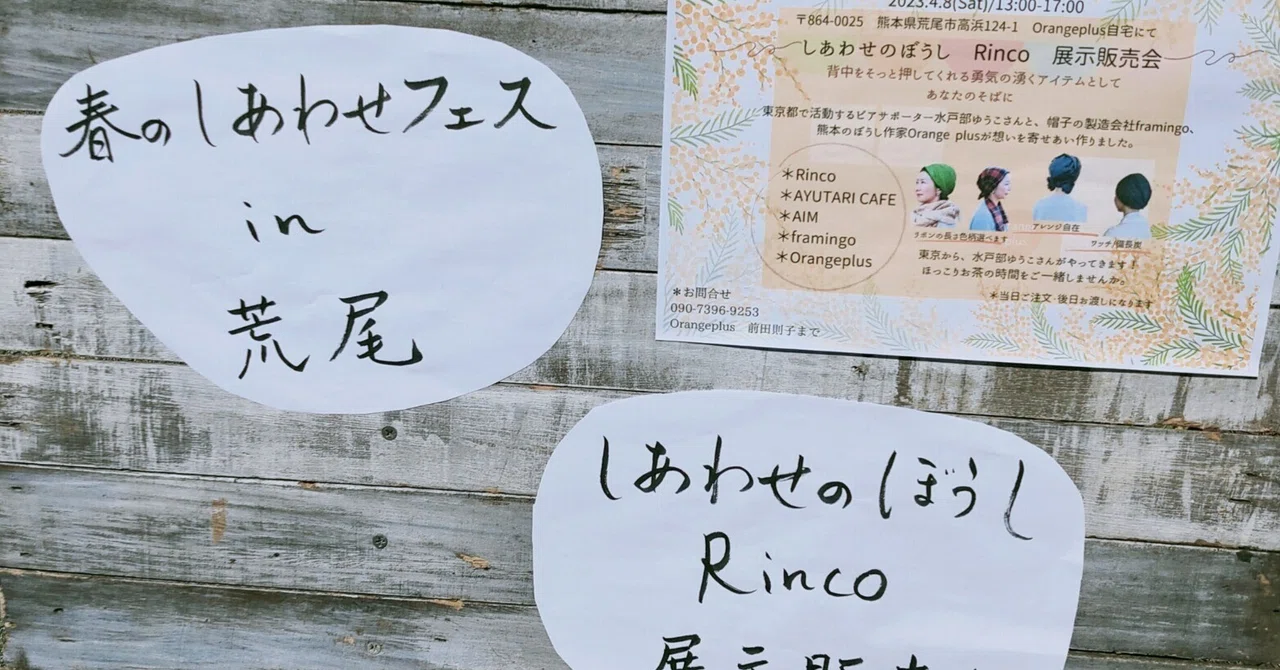 春のしあわせフェス
in
荒尾
2023.4.8(Sat)/13:00-17:00
〒864-0025 熊本県荒尾市高浜124-1 Orangeplus自宅にて
しあわせのぼうし Rinco 展示販売会
背中をそっと押してくれる勇気の湧くアイテムとして
あなたのそばに
東京都で活動するピアサポーター水戸部ゆうこさんと、帽子の製造会社framingo、
熊本のぼうし作家Orange plusが想いを寄せあい作りました。
＊Rinco
＊AYUTARI CAFE
＊AIM
＊framingo
＊Orangeplus
リボンの長さ色柄選べます
アレンジ自在
ワッチ/備長炭
東京から、水戸部ゆうこさんがやってきます！
ほっこりお茶の時間をご一緒しませんか。
＊当日ご注文・後日お渡しになります
＊お問合せ
090-7396-9253
Orangeplus 前田則子まで
しあわせのぼうし
Rinco
展示販